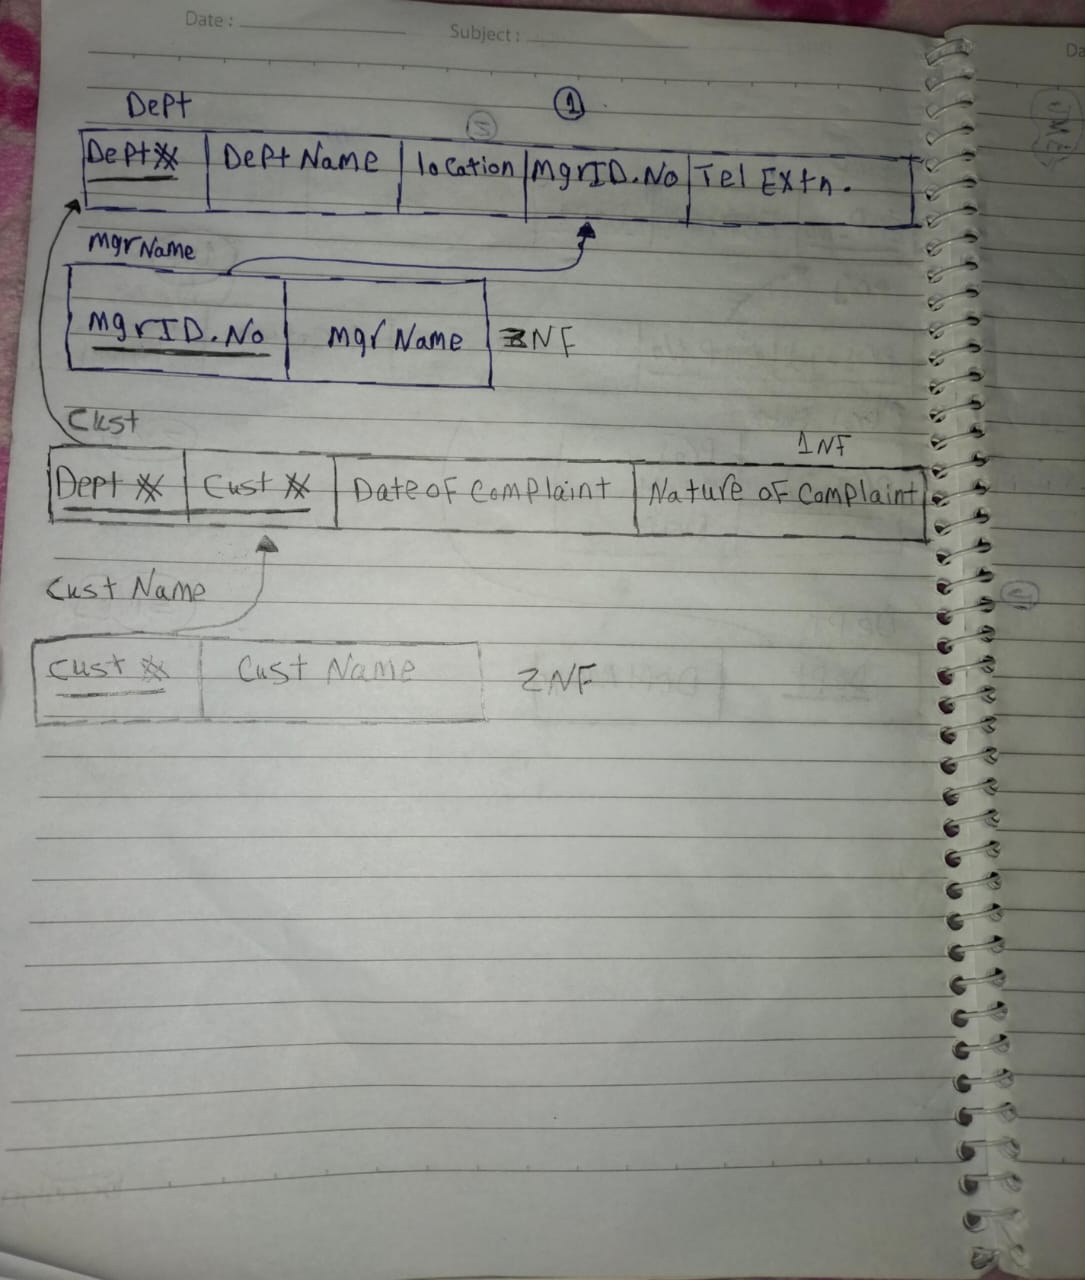 Date :
Subject :
Da
1
Dept
Dept# Dept Name location MgrID.No Tel Extn.
MgrName
MgrID.No MgrName 3NF
Cust
1NF
Dept # Cust # Date of Complaint Nature of Complaint
Cust Name
Cust # Cust Name 2NF